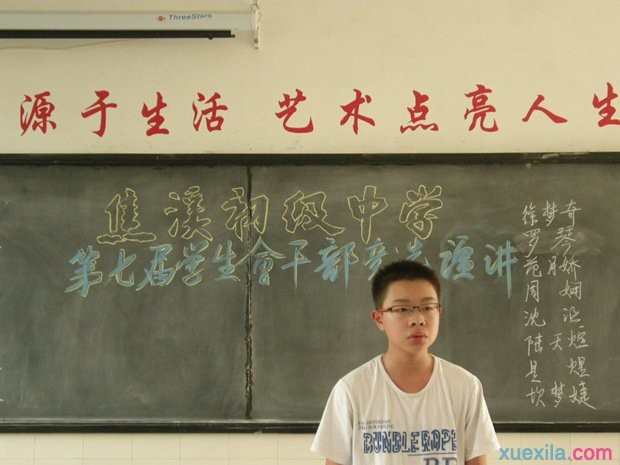 ThreeStars
源于生活 艺术点亮人生
焦溪初级中学
第七届学生会干部竞选演讲
徐梦奇
罗 琴
范月娇
周 娴
沈 沁
陆天煜
BUNDLERAPE
xuexila.com